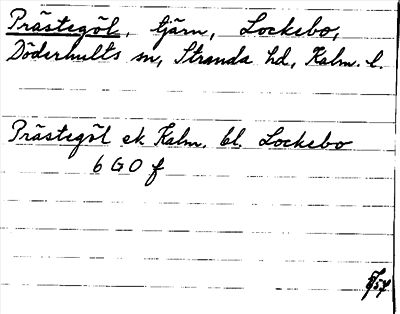 Prästegöl, tjärn, Lockebo,
Döderhults sn, Stranda hd, Kalm. l.
Prästegöl ek Kalm. bl. Lockebo
6 G O f